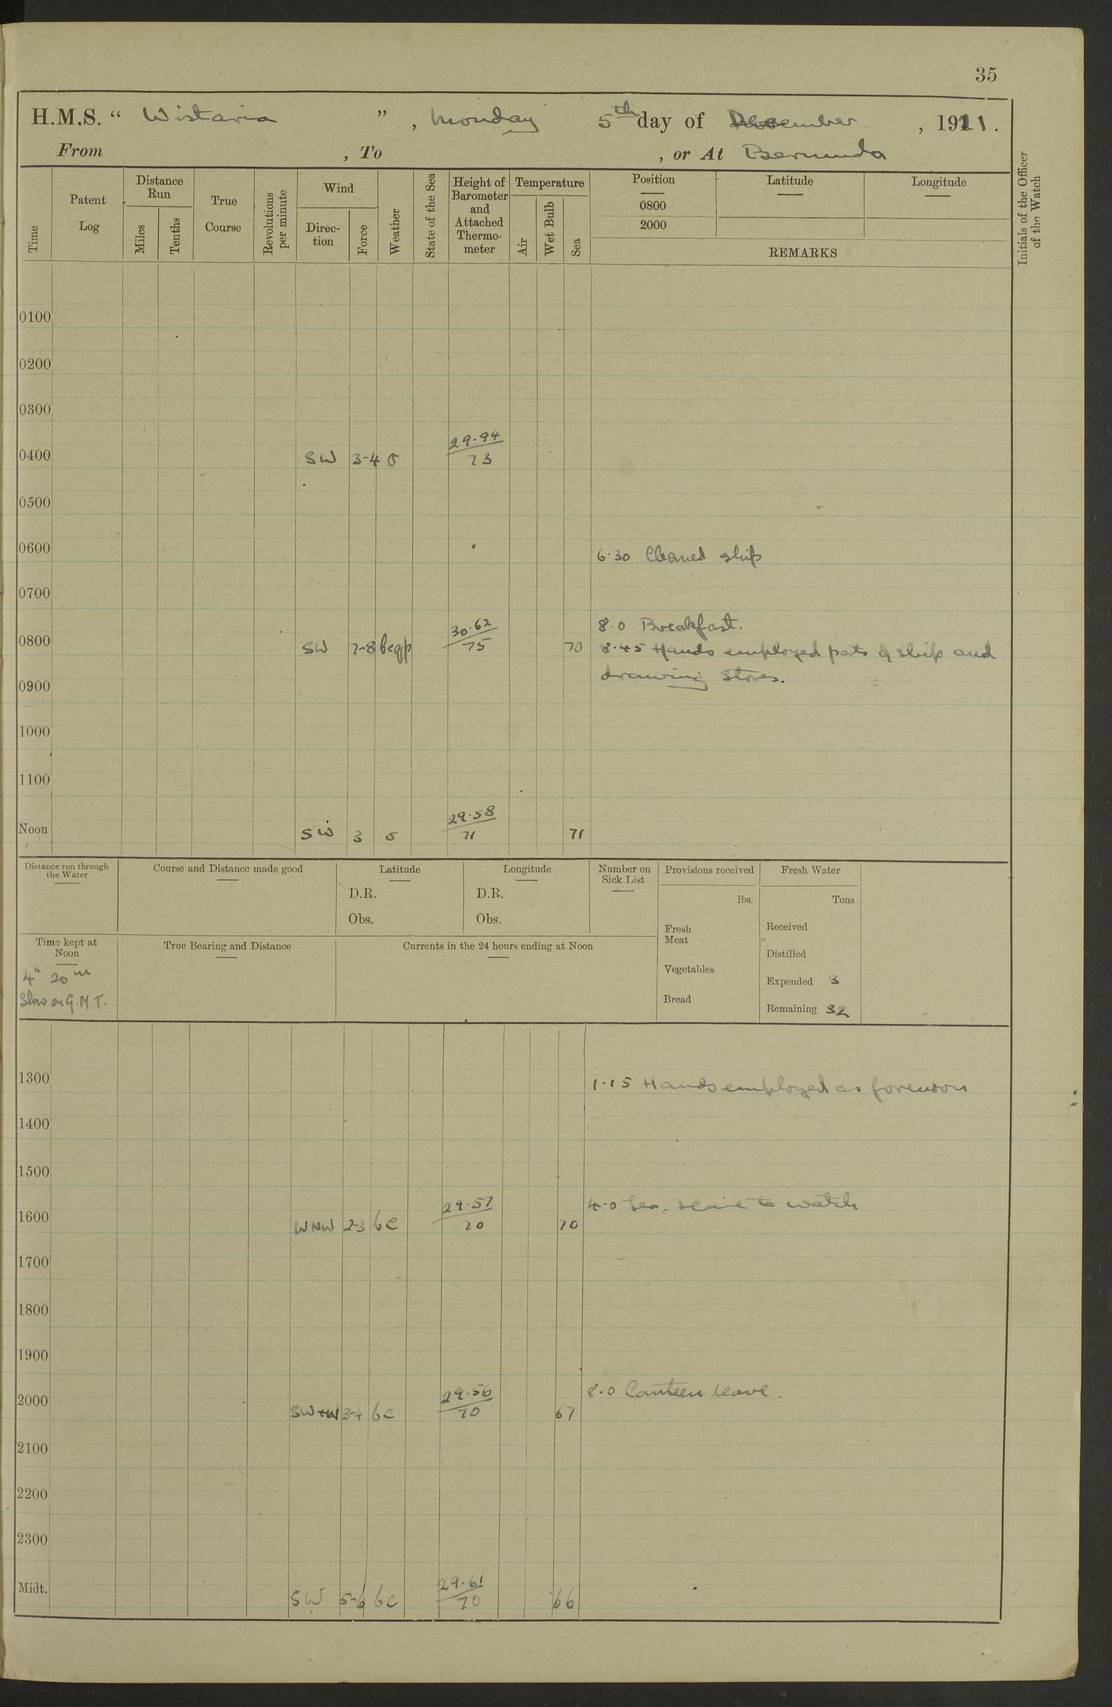 35
H.M.S. “ Wistaria ” , Monday 5th day of December , 1921.
From , To , or At Bermuda
Time
Patent Log
Distance Run
Miles
Tenths
True Course
Revolutions per minute
Wind
Direc-tion
Force
Weather
State of the Sea
Height of Barometer and Attached Thermo-meter
Temperature
Air
Wet Bulb
Sea
Position
0800
2000
Latitude
Longitude
REMARKS
Initials of the Officer of the Watch
0100
0200
0300
29.94
0400 SW 3-4 o 73
0500
0600 6.30 Cleaned ship
0700
30.62 8.0 Breakfast.
0800 SW 7-8 bcqp 75 70 8.45 Hands employed parts of ship and
0900 drawing stores.
1000
1100
29.58
Noon SW 3 o 71 71
Distance run through the Water
Course and Distance made good
Latitude
D.R.
Obs.
Longitude
D.R.
Obs.
Number on Sick List
Provisions received
lbs.
Fresh Meat
Vegetables
Bread
Fresh Water
Tons
Received
Distilled
Expended 3
Remaining 32
Time kept at Noon
4h 20m
Slow on G.M.T.
True Bearing and Distance
Currents in the 24 hours ending at Noon
1300 1.15 Hands employed as forenoon
1400
1500
29.57 4.0 Tea. Leave to watch
1600 WNW 2-3 bc 70 70
1700
1800
1900
29.56 8.0 Canteen leave.
2000 SW+W 3-4 bc 70 67
2100
2200
2300
29.61
Midt. SW 5-6 bc 70 66